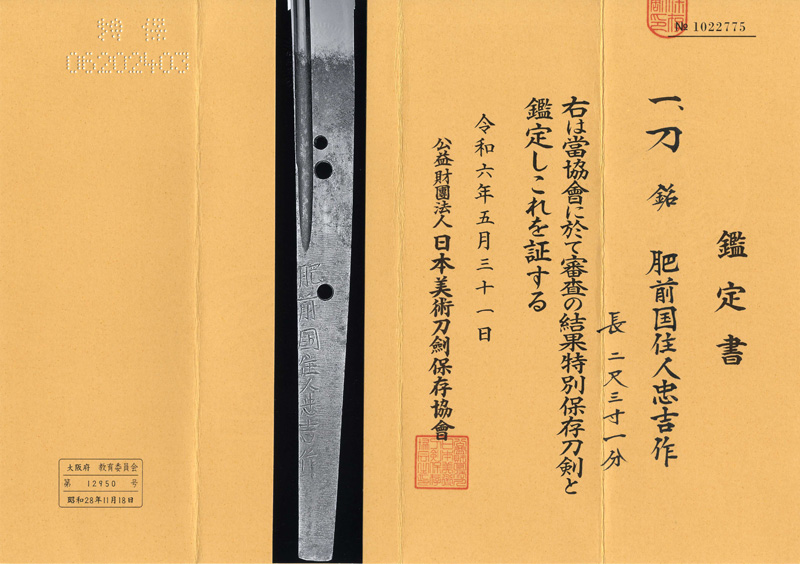 № 1022775
鑑定書
一、刀 銘 肥前国住人忠吉作
長 二尺三寸一分
右は當協會に於て審査の結果特別保存刀剣と
鑑定しこれを証する
令和六年五月三十一日
公益財團法人日本美術刀劍保存協會
肥前国住人忠吉作
特保
06202403
大阪府 教育委員会
第 12950 号
昭和28年11月18日